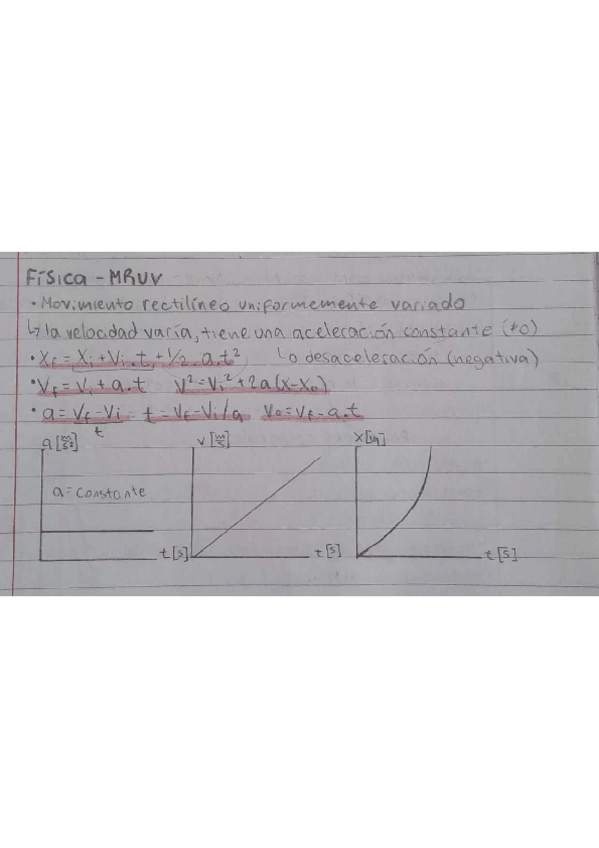 Física - MRUV
• Movimiento rectilíneo uniformemente variado
↳ la velocidad varía, tiene una aceleración constante (≠0)
• Xf = Xi + Vi . t + 1/2 . a.t² ↳ o desaceleración (negativa)
• Vf = Vi + a.t V² = Vi² + 2a(x-x₀)
• a = Vf - Vi / t t = Vf - Vi / a V₀ = Vf - a.t
a [m/s²] V [m/s]
a = constante
t [s] t [s] t [s]